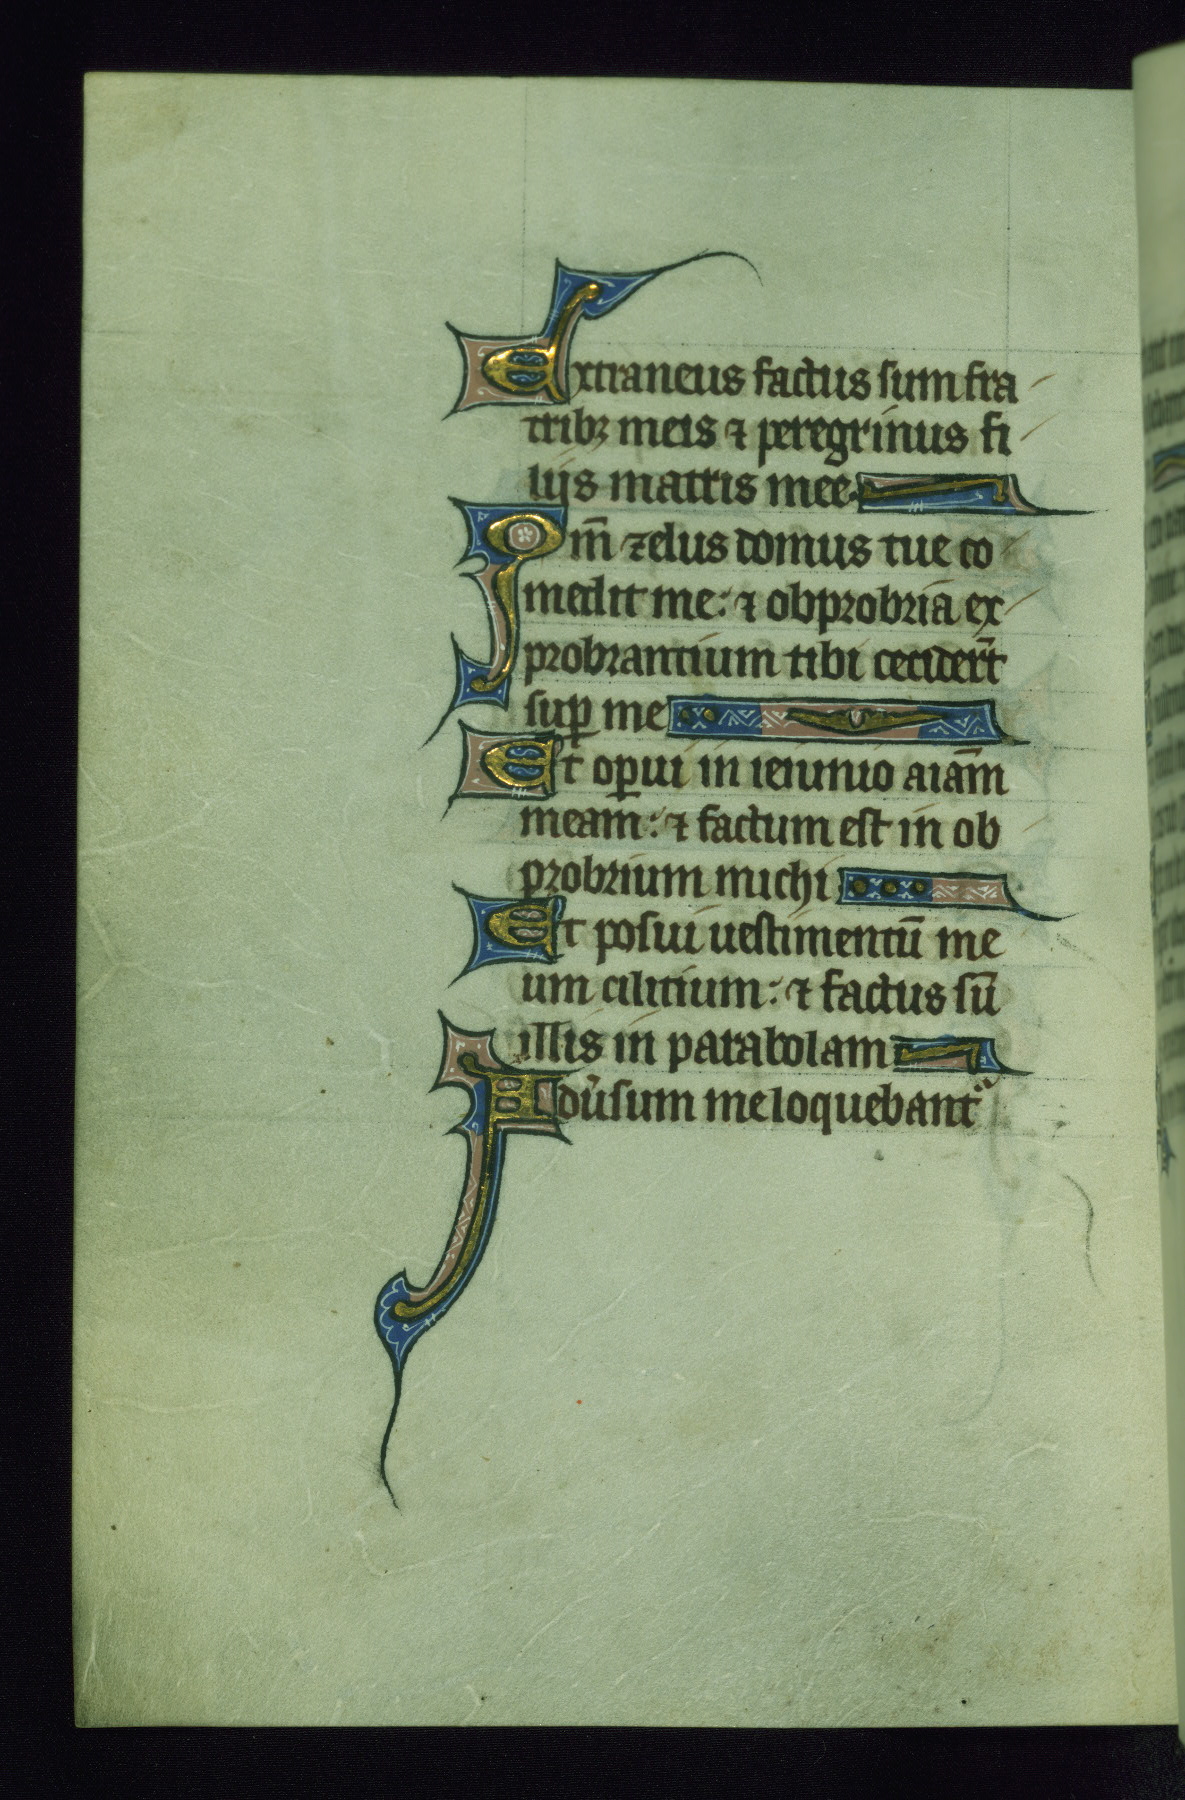 Extraneus factus sum fra
tribꝫ meis ⁊ peregrinus fi
lijs matris mee.
Qm̄ zelus domus tue co
medit me: ⁊ obprobria ex
probrantium tibi cecider̄t
suꝑ me
Et oꝑui in ieiunio aīam
meam: ⁊ factum est in ob
probrium michi
Et posui uestimentū me
um cilitium: ⁊ factus sū
illis in parabolam
Adu̾sum me loquebant᷑